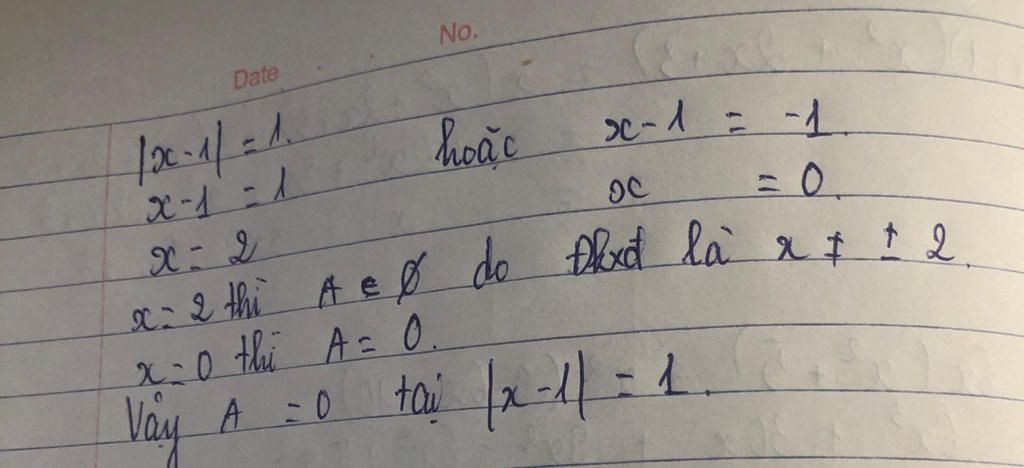 No.
Date
|x-1| = 1. hoặc x-1 = -1.
x-1 = 1 x = 0.
x = 2
x = 2 thì A ∈ ∅ do Đkxđ là x ≠ ± 2.
x = 0 thì A = 0.
Vậy A = 0 tại |x-1| = 1.